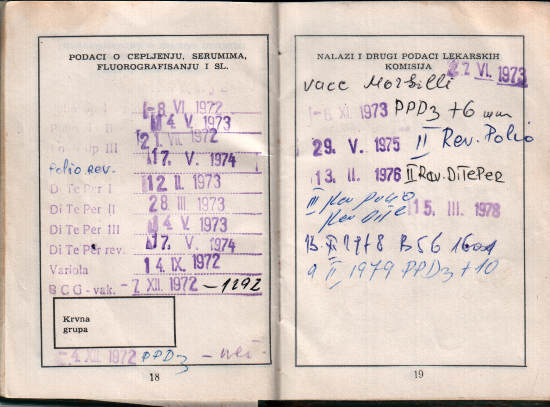 PODACI O CEPLJENJU, SERUMIMA,
FLUOROGRAFISANJU I SL.
-8. VI. 1972
II 4. V. 1973
III VII. 1972
Polio rev. 17. V. 1974
Di Te Per I 12 II. 1973
Di Te Per II 28 III 1973
Di Te Per III 4. V. 1973
Di Te Per rev. 17. V. 1974
Variola 14. IX. 1972
BCG - vak. -7. XII. 1972 - 1292
Krvna
grupa
-4. XII. 1972 PPD3 - neg.
18
NALAZI I DRUGI PODACI LEKARSKIH
KOMISIJA
27 VI. 1973
vacc Morbilli
-6. XI. 1973 PPD3 +6 mm
29. V. 1975 II Rev. Polio
13. II. 1976 II Rev. DiTePer
III Rev polio
Rev DiTe 15. III. 1978
1978 BCG
9 II 1979 PPD3 +10
19